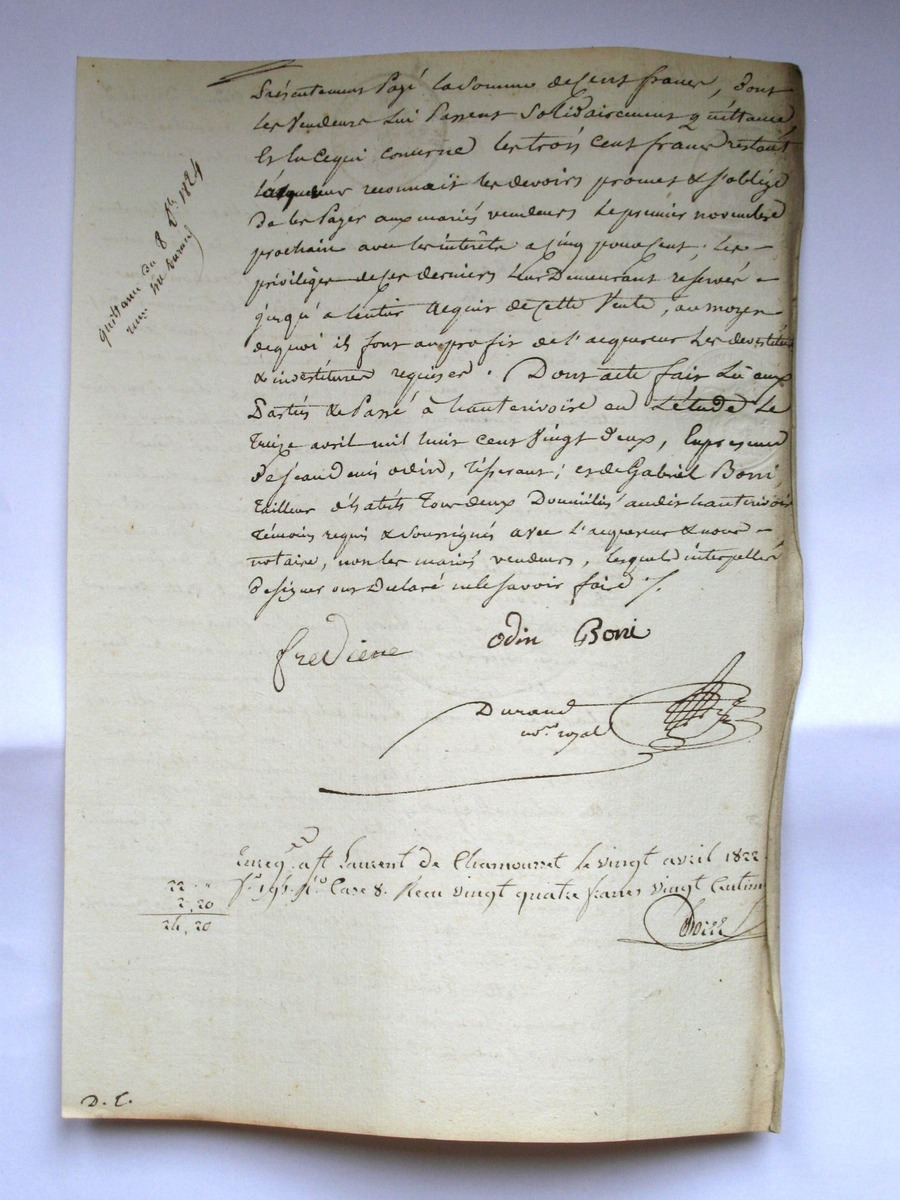 quittance du 8 Xbre 1824
reçu Me Durand
présentement payé la somme de Cent francs, dont
les Vendeurs lui Passent Solidairement quittance
Et en Ce qui concerne les trois Cent francs restant
l'acquereur reconnait les devoirs promet & s'oblige
De les Payer aux mariés vendeurs le premier novembre
prochain avec les intérêts a Cinq pour cent, les
privilèges de ses derniers leur Demeurant reservés
jusqu'a l'entier acquit de Cette Vente, au moyen
de quoi ils font au profit de l'acquereur les devestiture
& investitures requises. Dont acte fait lu aux
Parties & Passé à hauterivoire en L'étude le
Treize avril mil huit cent Vingt Deux, En presence
De Jean Denis odin, Tisserant; et de Gabriel Borri,
Tailleur d'habits tous deux Domiciliés audit hauterivoire
témoins requis & soussignés avec l'acquereur & nous
notaire, non les mariés vendeurs, lesquels interpellés
De signer ont Declaré ne le savoir faire /.
odin Borri
Durand
nore royal
Enregé a St Laurent de Chamousset le vingt avril 1822
Case 8. Reçu vingt quatre francs vingt Centimes
22 "
2,20
24,20
D. C.